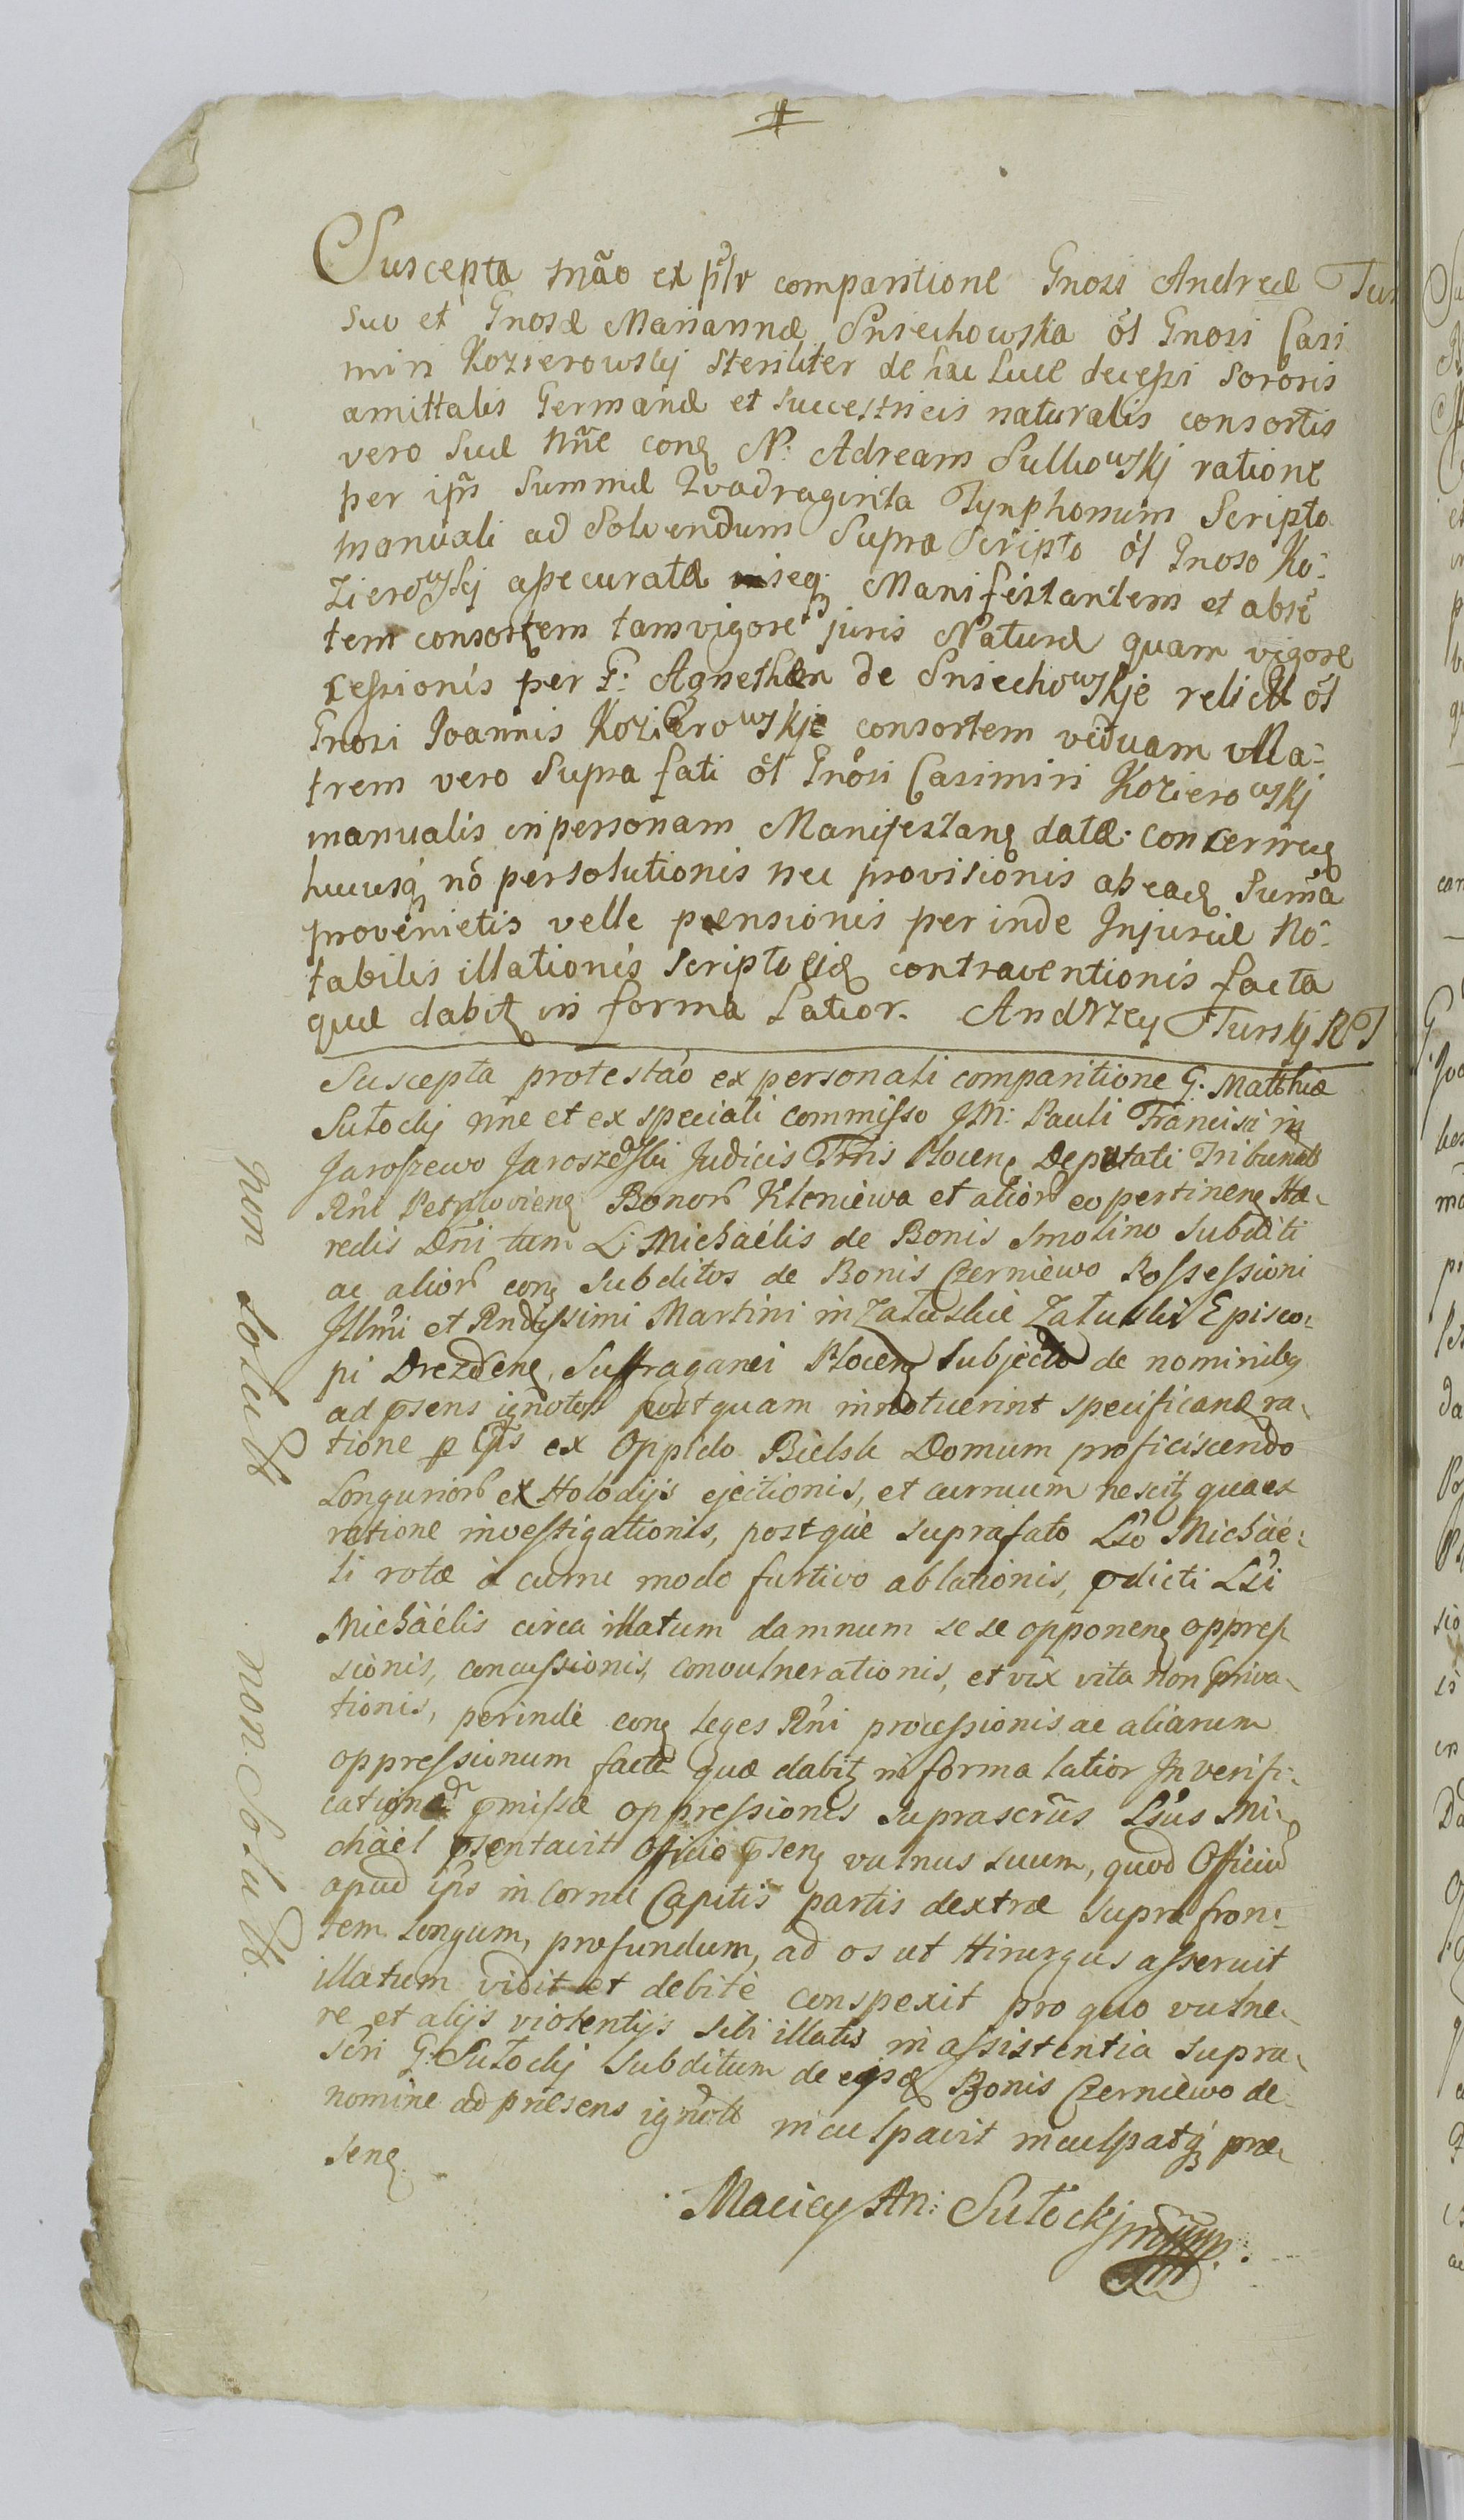 Suscepta mãο ex pslr comparitione Gnosi Andreæ Tur
suo et Gnosæ Mariannæ Sniechowska ol Gnosi Casi
miri Kozierowskj steriliter de hac luce decessi sororis
amittalis Germanæ et successtricis naturalis consortis
vero suæ nñe conq N: Adream Sulkowskj ratione
per ipm summæ Qvadraginta Tynphonum scripto
manuali ad solvendum supra scripto ol Gnoso Ko-
zierowskj assecuratæ inseq Manifestantem et absẽ
tem consortem tam vigore juris Naturæ quam vigore
cessionis per G: Agnethen de Sniechowskje relictæ ol
Gnosi Joannis Kozierowskje consortem viduam Ma-
trem vero supra fati ol Gnosi Casimiri Kozierowskj
manualis in personam Manifestanq datæ concernenq
hucusq nõ persolutionis nec provisionis ab eadq sumã
provenietis velle pensionis per inde Injuriæ No-
tabilis illationis scripto eidq contraventionis facta
quæ dabitq in forma latior. Andrzey Turskj RT
Suscepta protestao ex personali comparitione G. Matthiæ
Sutockj nñe et ex speciali commisso JM: Pauli Francisci in
Jaroszewo Jaroszewski Judicis Trris Plocenq Deputati Tribunals
Rni Petricovienq Bonor Kleniewa et alior eo pertinenq Hæ-
redis Dni tum L: Michaélis de Bonis Smolino subditi
ac alior conq subditos de Bonis Czerniewo Possessioni
Jllmi et Rndissimi Martini in Załuskie Załuski Episco-
pi Drezdenq, Suffraganei Plocenq subjecto de nominibq
ad psens ignotos postquam innotuerint specificanq ra-
tione p ipos ex Oppido Bielsk Domum proficiscendo
Longurior ex Holodijs ejectionis, et curruum nescitq qua ex
ratione investigationis, postqúe suprafato Lso Michaé-
li rotæ à curru modo furtivo ablationis, pdicti Lsi
Michaélis circa illatum damnum se se opponenq oppres
sionis, concussionis, convulnerationis, et vix vita non priva-
tionis, perinde conq leges Rni processionis ac aliarum
oppressionum facta quæ dabitq in forma latior Jn verifi-
cationem pmissæ oppressiones suprascrius Lsus Mi-
chaél psentavit Officio psenq vulnus suum, quod Officiu
apud ips in cornu Capitis partis dextræ supra fron-
tem longum, profundum, ad os ut Hirurgus asseruit
illatum vidit et debitè conspexit pro quo vulne-
re et alijs violentijs sibi illatis in assistentia supra-
scri G: Sutockj subditum de eisdq Bonis Czerniewo de
nomine ad præsens ignotu inculpavit inculpatq præ-
senq.
Maciey An: Sutockj mpp.
non solut
non solut